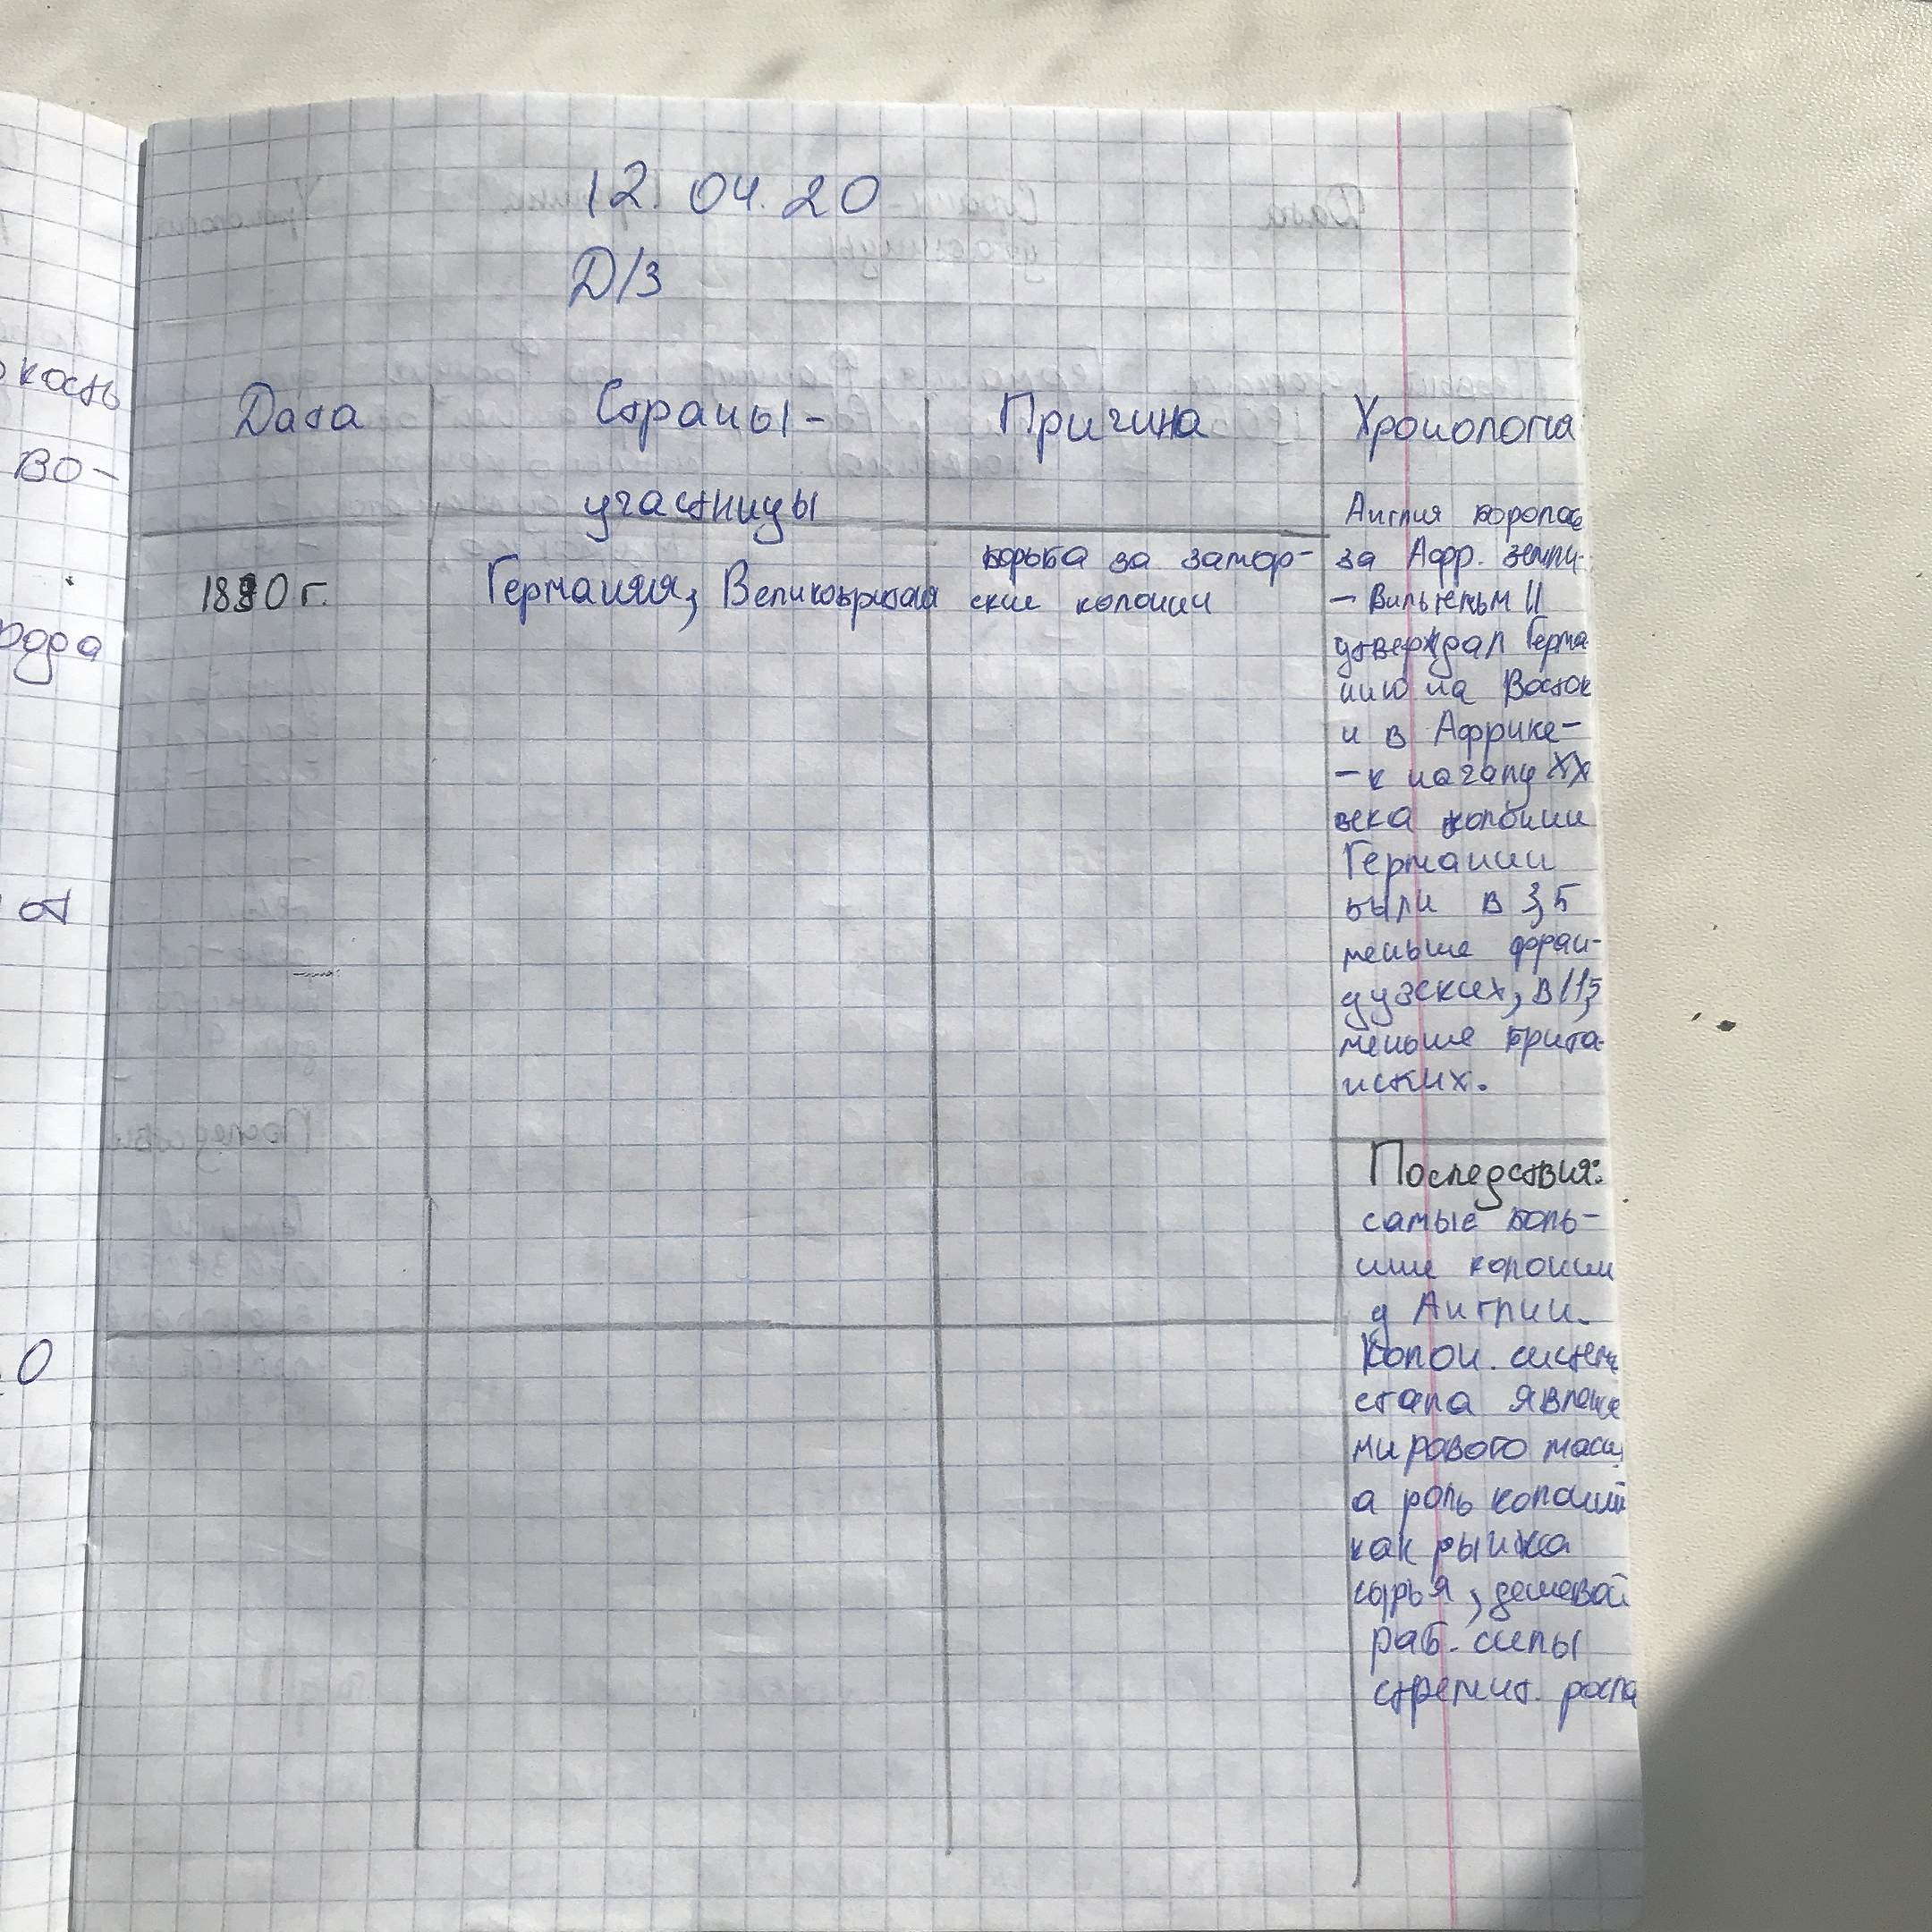 12.04.20
Д/З
Дата
Страны-
участницы
Причина
Хронология
1880 г.
Германия, Великобритания
борьба за замор-
ские колонии
Англия боролась
за Афр. земли.
- Вильгельм II
утверждал Герма
нию на Восток
и в Африке-
- к началу XX
века колонии
Германии
были в 3,5
меньше фран-
цузских, в 11,5
меньше брита-
нских.
Последствия:
самые боль-
шие колонии
у Англии.
Колон. систем
стала явление
мирового масш
а роль колоний
как рынка
сырья, дешевой
раб. силы
стремит. росла
кость
во-
рода
я
0